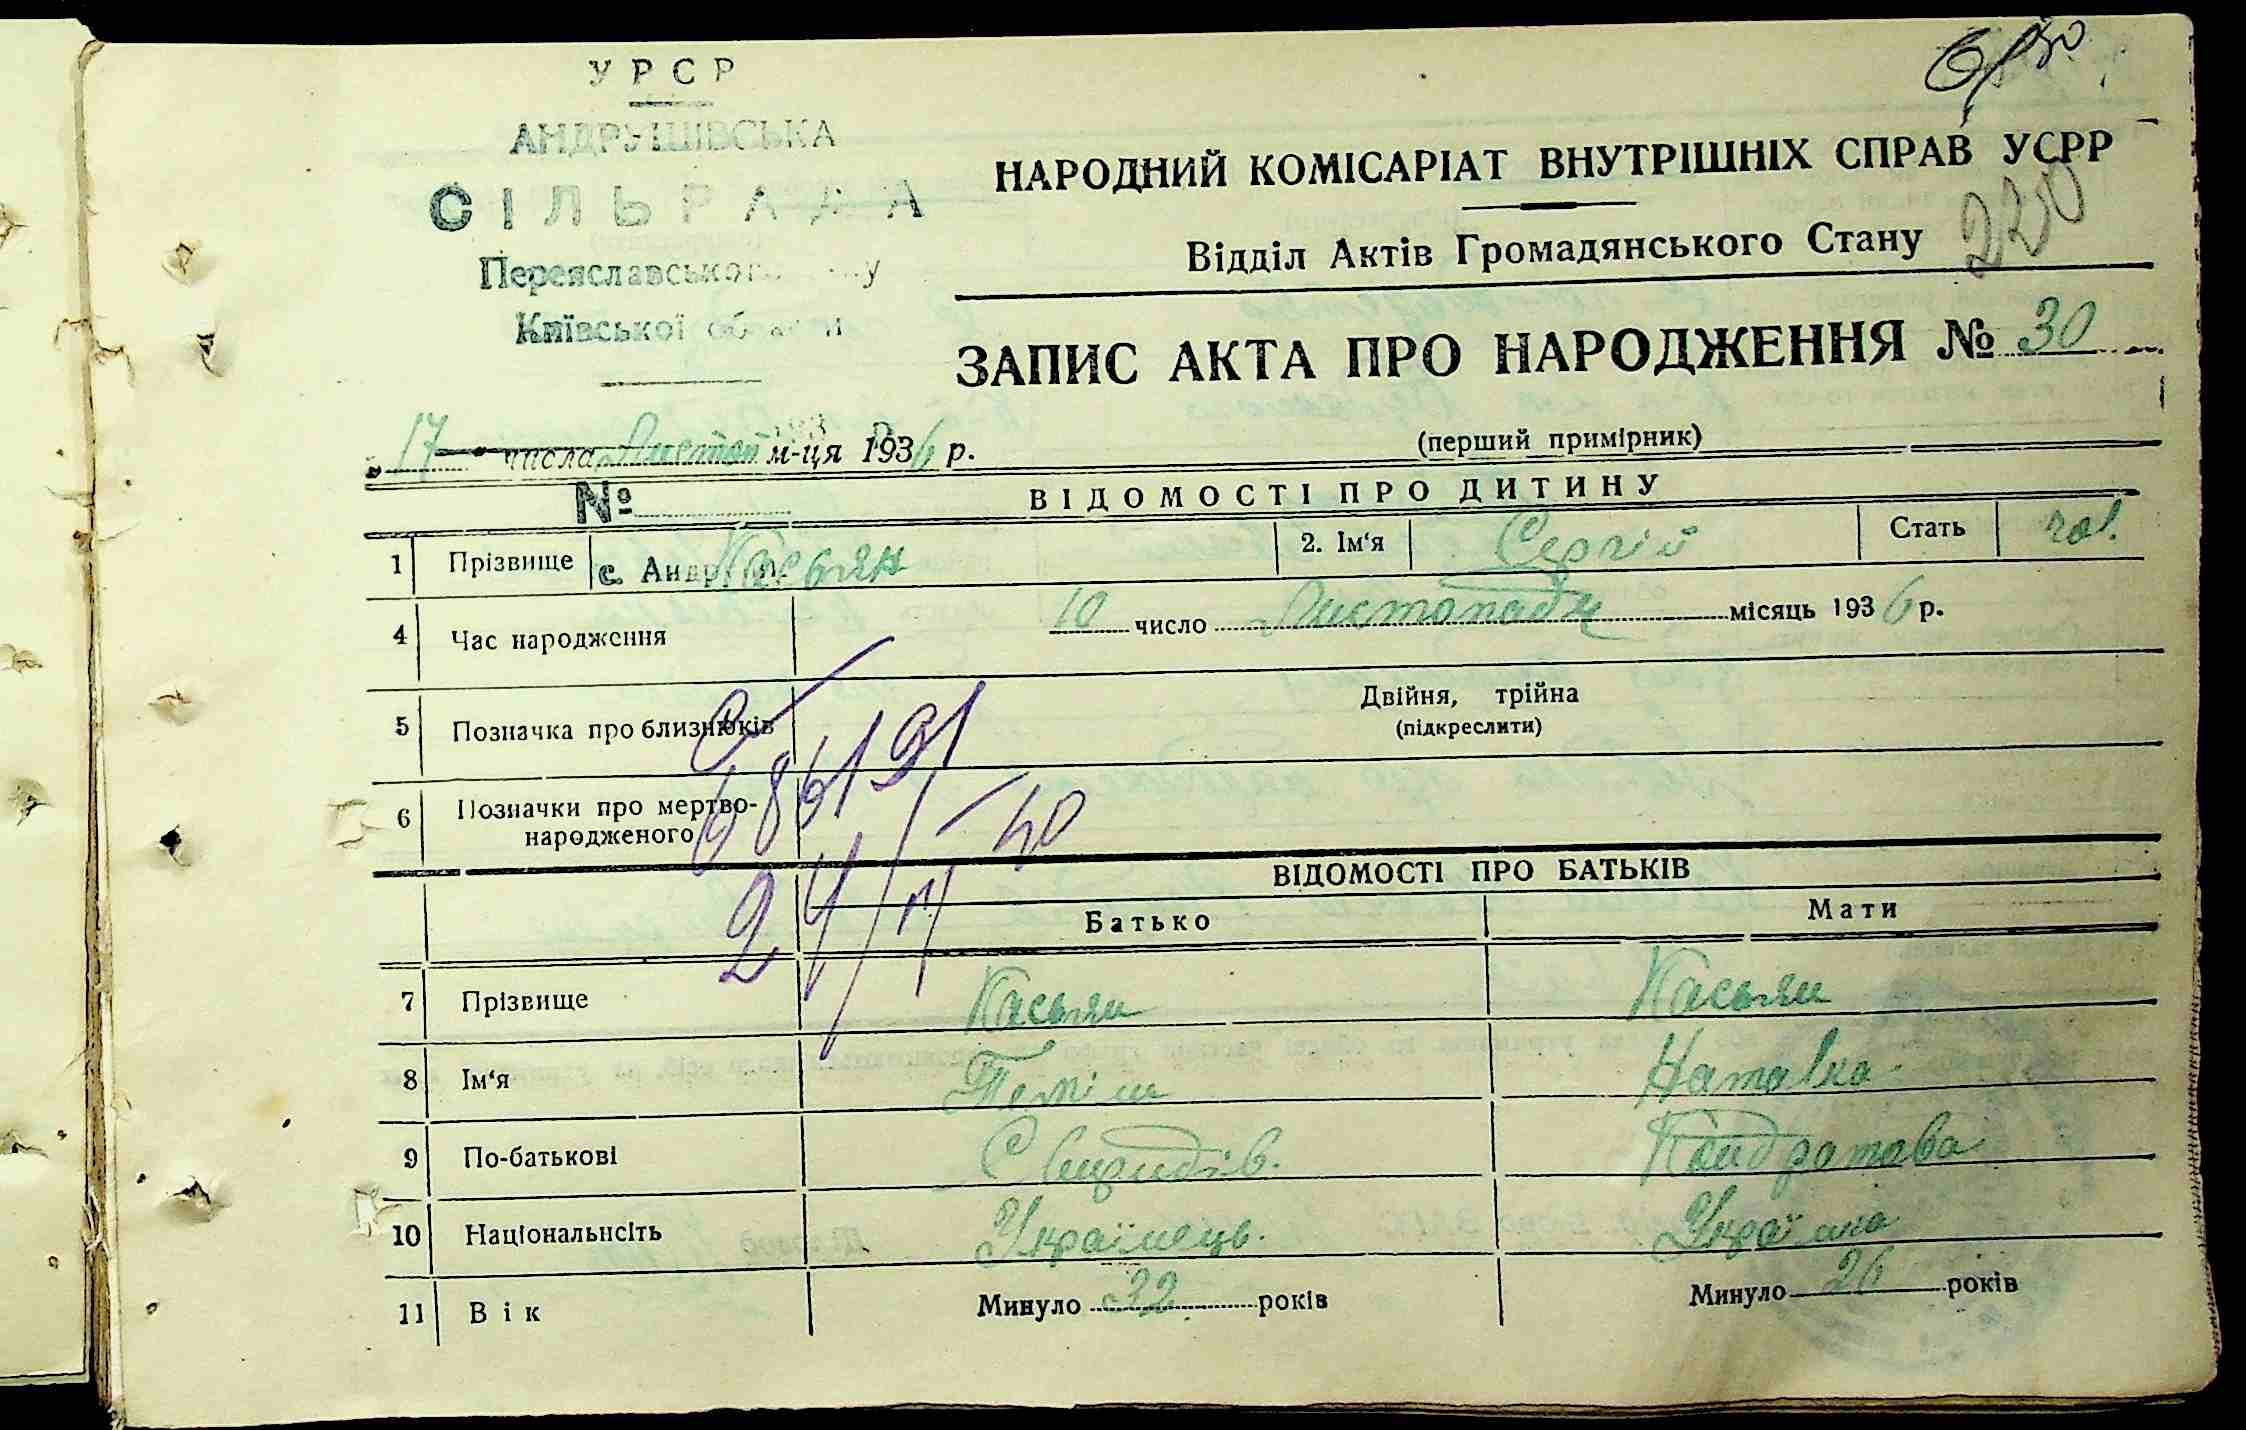 УРСР
АНДРУШІВСЬКА
СІЛЬРАДА
Переяславського
Київської
220
НАРОДНИЙ КОМІСАРІАТ ВНУТРІШНІХ СПРАВ УСРР
Відділ Актів Громадянського Стану
ЗАПИС АКТА ПРО НАРОДЖЕННЯ № 30
(перший примірник)
„17" числа Листоп м-ця 1936 р.
№
ВІДОМОСТІ ПРО ДИТИНУ
1 Прізвище с. Касьян 2. Ім'я Сергій Стать чол.
4 Час народження 10 число Листопада місяць 1936 р.
5 Позначка про близнюків Двійня, трійна
(підкреслити)
6 Позначки про мертво-
народженого
24/ІІ—40
ВІДОМОСТІ ПРО БАТЬКІВ
Батько Мати
7 Прізвище Касьян Касьян
8 Ім'я Наталка
9 По-батькові Свиридів. Кондратова
10 Національнсіть Українець. Українка
11 Вік Минуло 32 років Минуло 26 років